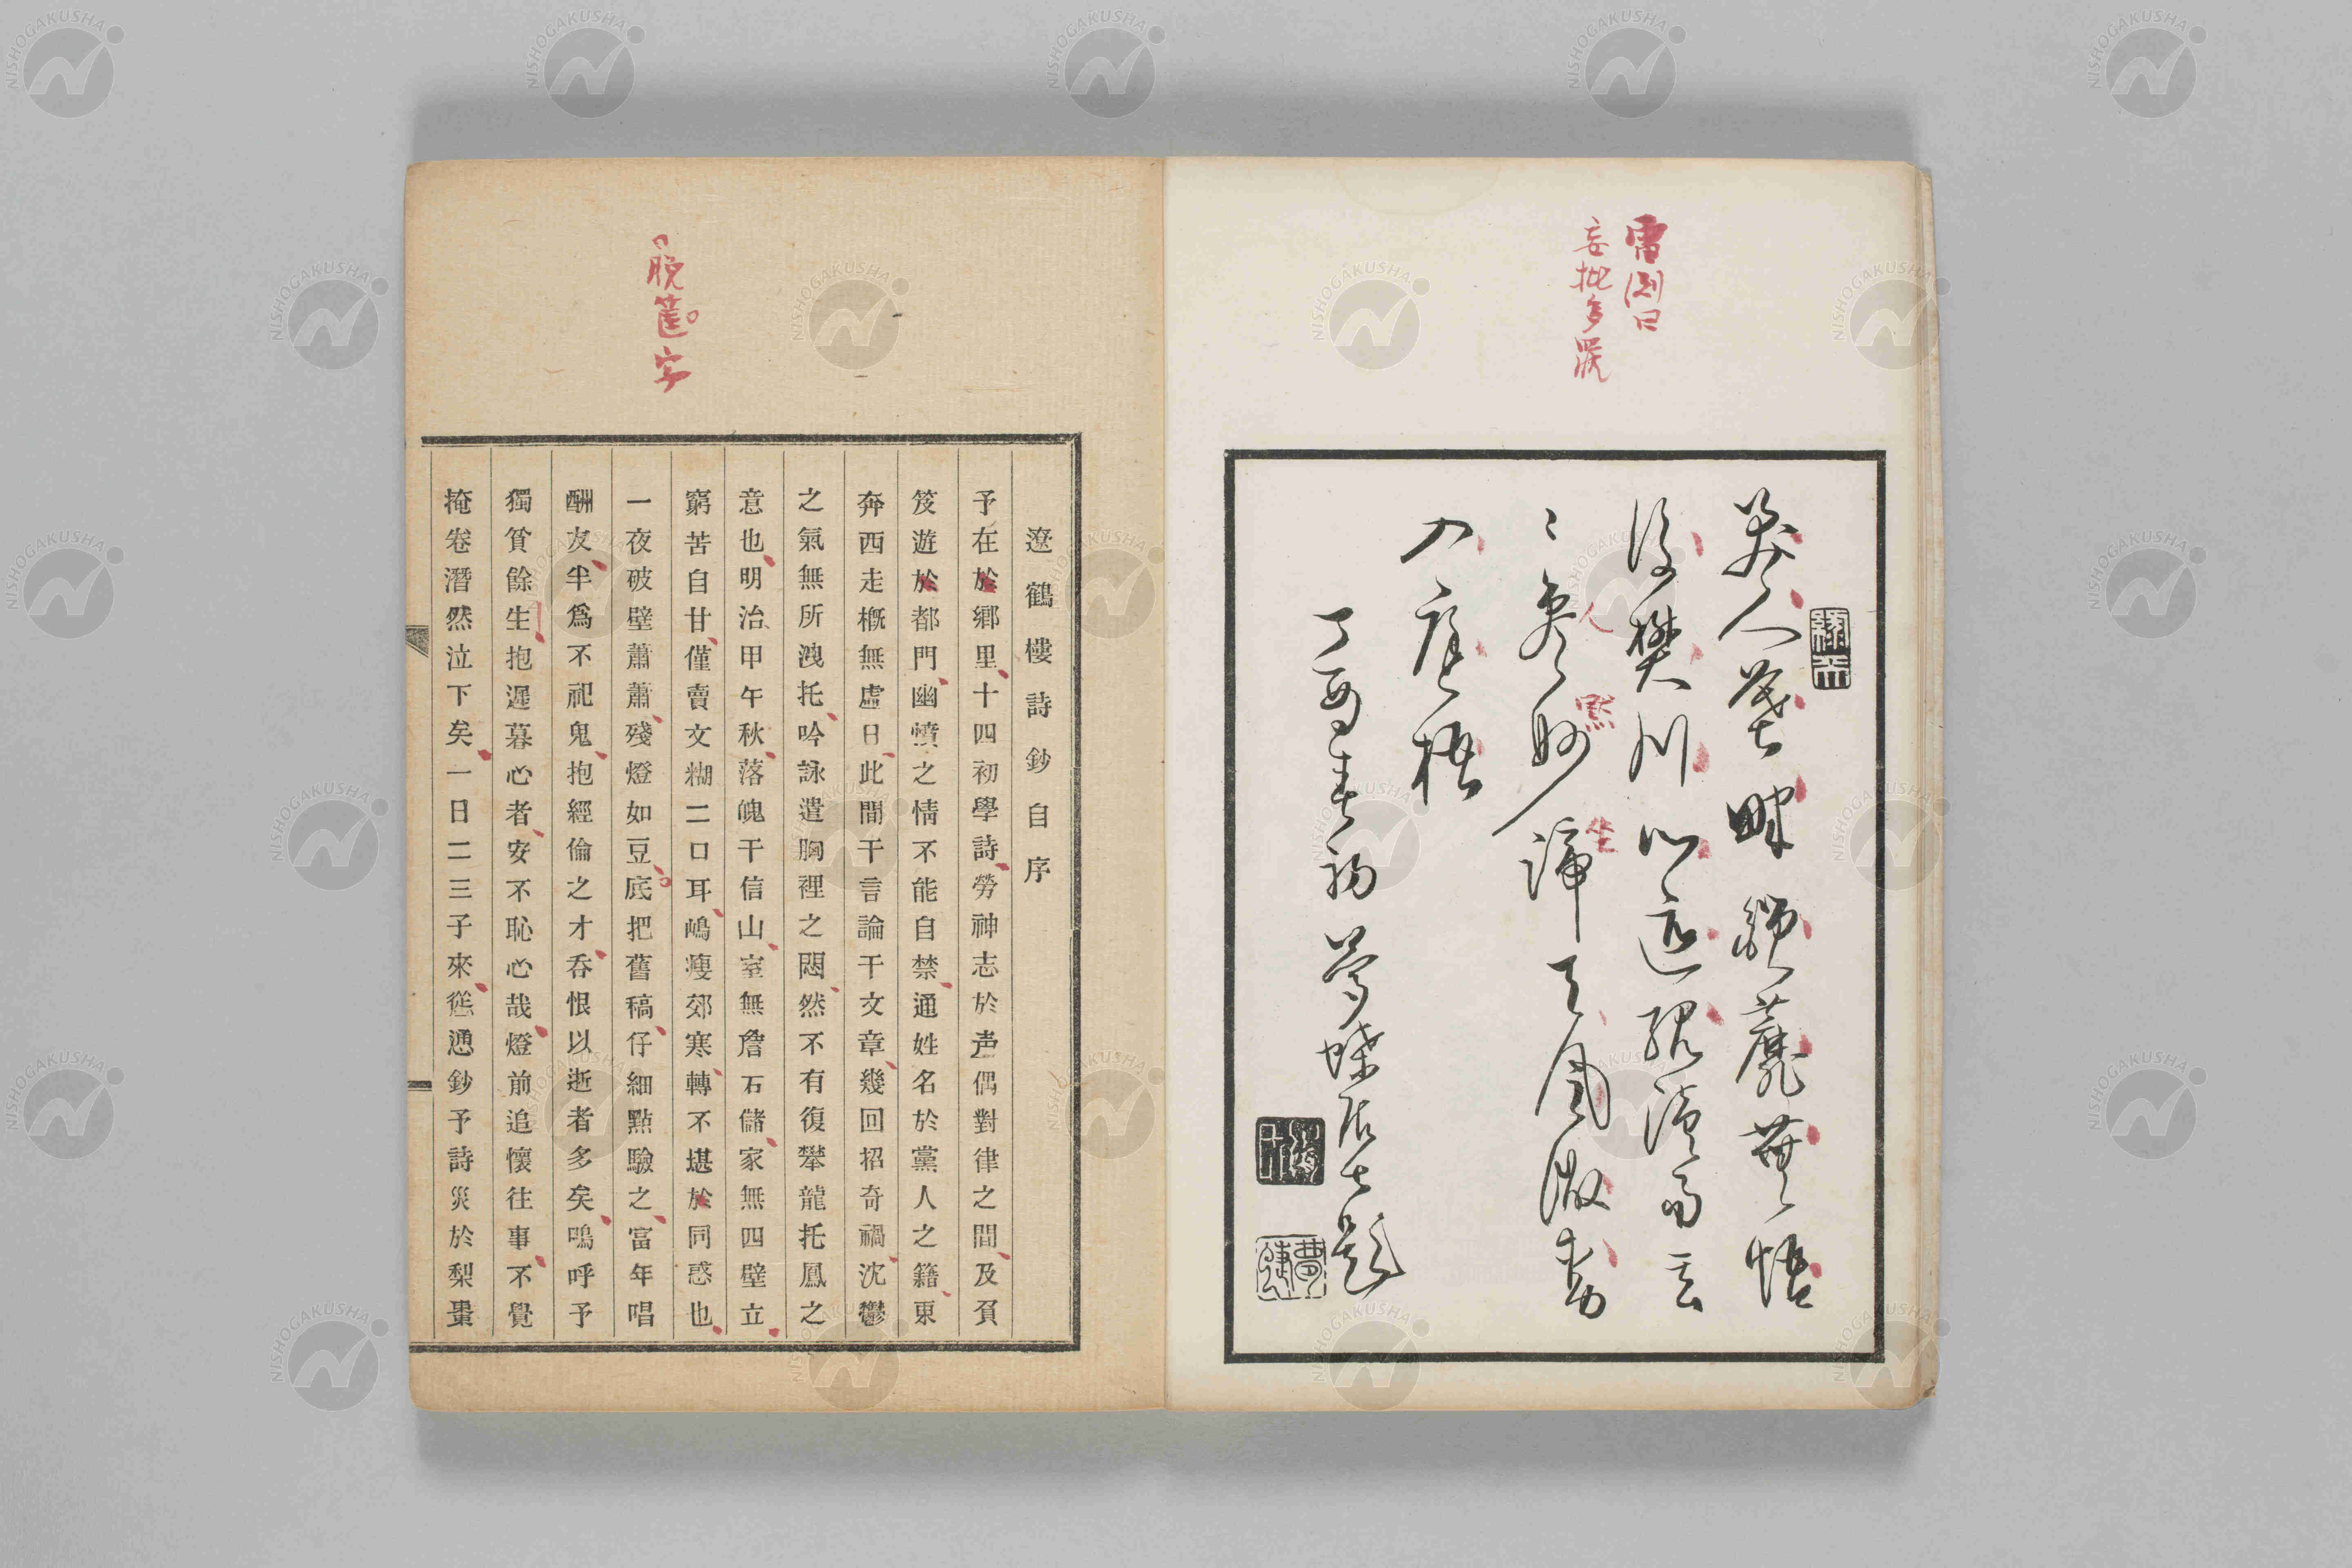 妄批多罪
人 蘼蕪悟
後樊川
妙諦天風微動
入庭梧
丁酉春初 夢蝶居士題
人
默
坐
脱篋字
遼鶴樓詩鈔自序
予在於鄉里十四初學詩勞神志於声偶對律之間及負
笈遊於都門幽憤之情不能自禁通姓名於黨人之籍東
奔西走概無虛日此間干言論干文章幾回招奇禍沈鬱
之氣無所洩托吟詠遣胸裡之悶然不有復攀龍托鳳之
意也明治甲午秋落魄干信山室無詹石儲家無四壁立
窮苦自甘僅賣文糊二口耳嶋瘦郊寒轉不堪於同惑也
一夜破壁蕭蕭殘燈如豆底把舊稿仔細點驗之富年唱
酬友半爲不祀鬼抱經倫之才呑恨以逝者多矣嗚呼予
獨貧餘生抱遲暮心者安不恥心哉燈前追懷往事不覺
掩卷潛然泣下矣一日二三子來慫慂鈔予詩災於梨棗
NISHOGAKUSHA